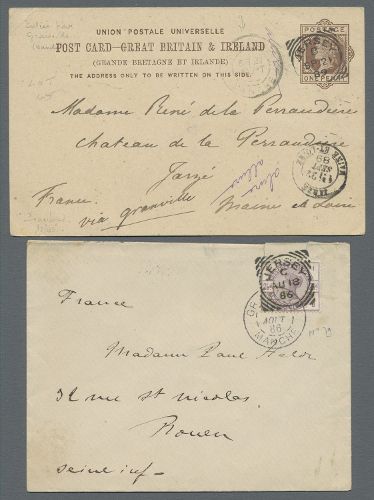 UNION POSTALE UNIVERSELLE
POST CARD—GREAT BRITAIN & IRELAND
(GRANDE BRETAGNE ET IRLANDE)
THE ADDRESS ONLY TO BE WRITTEN ON THIS SIDE.
POSTAGE
ONE PENNY
JERSEY
Madame René de la Perraudière
Chateau de la Perraudière
Jarzé
France.
via granville
Maine et Loire
MAINE-ET-LOIRE
JERSEY
C
AU 18
86
AOUT
86
MANCHE
France
Madame Paul
32 rue st nicolas
Rouen
Seine inf—